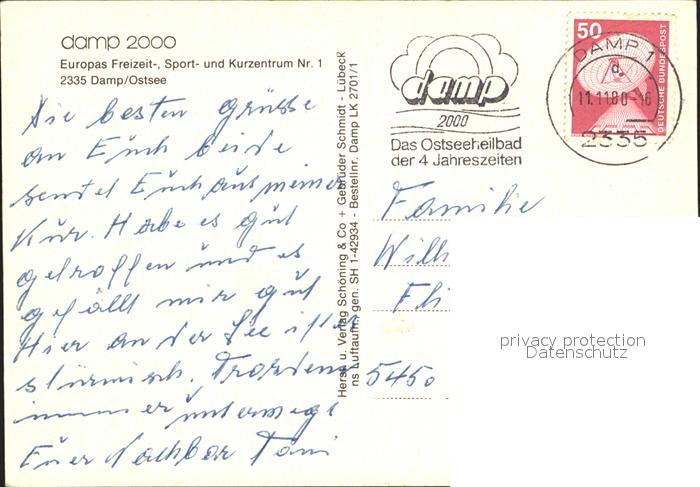 damp 2000
Europas Freizeit-, Sport- und Kurzentrum Nr. 1
2335 Damp/Ostsee
Die besten Grüsse
an Euch beide
sendet Euch aus meiner
Kur. Habe es gut
getroffen und es
gefällt mir gut
Hier an der See ist es
stürmisch. Trotzdem
immer unterwegs
Euer Nachbar Toni
Herst. u. Verlag Schöning & Co + Gebrüder Schmidt - Lübeck
ns Luftaufn. gen. SH 1-42934 - Bestellnr. Damp LK 2701/1
damp
2000
Das Ostseeheilbad
der 4 Jahreszeiten
50
DEUTSCHE BUNDESPOST
DAMP 1
d
11.11.80-16
2335
Familie
Will
5450
privacy protection
Datenschutz